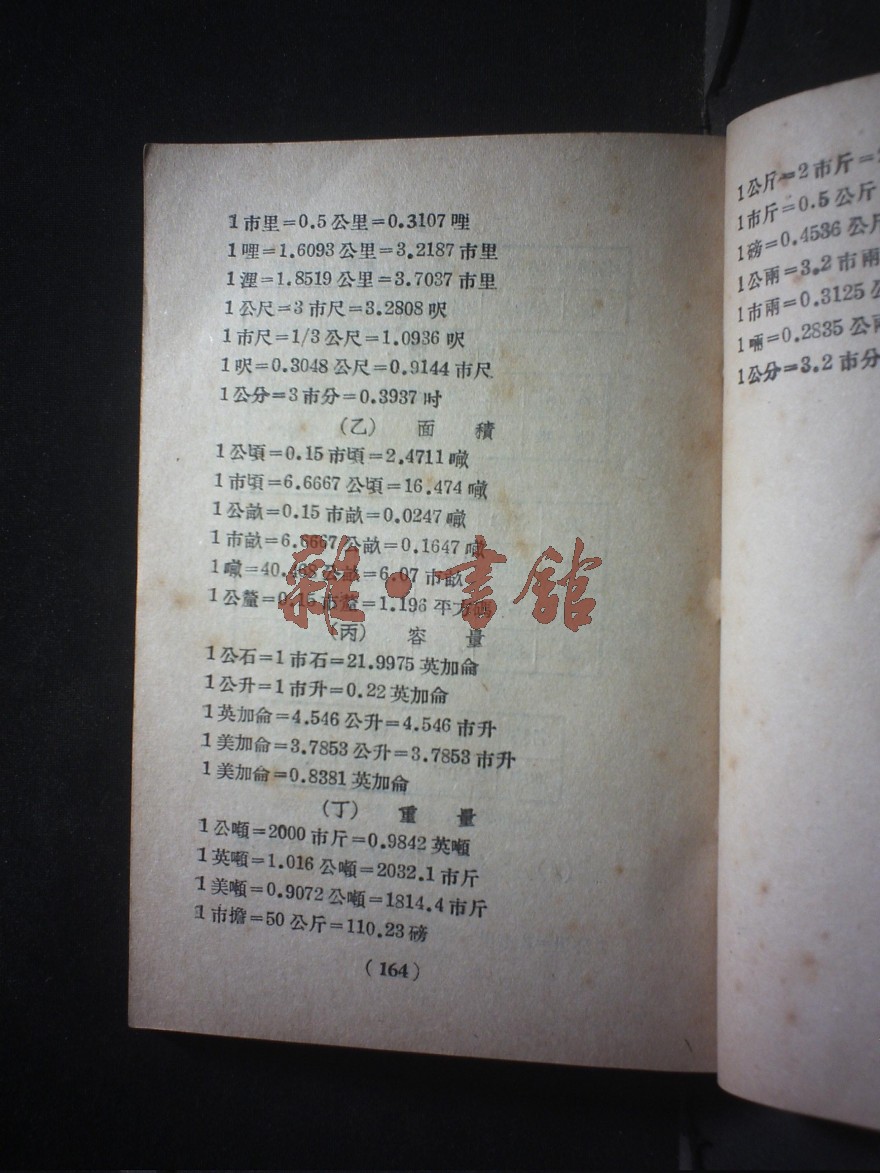 1市里=0.5公里=0.3107哩
1哩=1.6093公里=3.2187市里
1浬=1.8519公里=3.7037市里
1公尺=3市尺=3.2808呎
1市尺=1/3公尺=1.0936呎
1呎=0.3048公尺=0.9144市尺
1公分=3市分=0.3937吋
(乙) 面 積
1公頃=0.15市頃=2.4711噉
1市頃=6.6667公頃=16.474噉
1公畝=0.15市畝=0.0247噉
1市畝=6.6667公畝=0.1647噉
1噉=40.468公畝=6.07市畝
1公釐=0.15市釐=1.196平方碼
(丙) 容 量
1公石=1市石=21.9975英加侖
1公升=1市升=0.22英加侖
1英加侖=4.546公升=4.546市升
1美加侖=3.7853公升=3.7853市升
1美加侖=0.8381英加侖
(丁) 重 量
1公噸=2000市斤=0.9842英噸
1英噸=1.016公噸=2032.1市斤
1美噸=0.9072公噸=1814.4市斤
1市擔=50公斤=110.23磅
(164)
1公斤=2市斤=
1市斤=0.5公斤
1磅=0.4536公斤
1公兩=3.2市兩
1市兩=0.3125公
1啢=0.2835公兩
1公分=3.2市分
雜·書舘